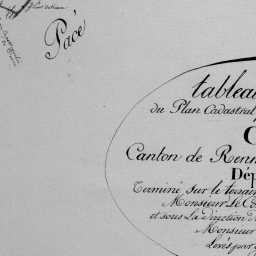 Pacé
tableau
du Plan Cadastral
C
Canton de Renn
Dép
Terminé sur le terrain
Monsieur Le C
et sous La direction d
Monsieur
Levés par